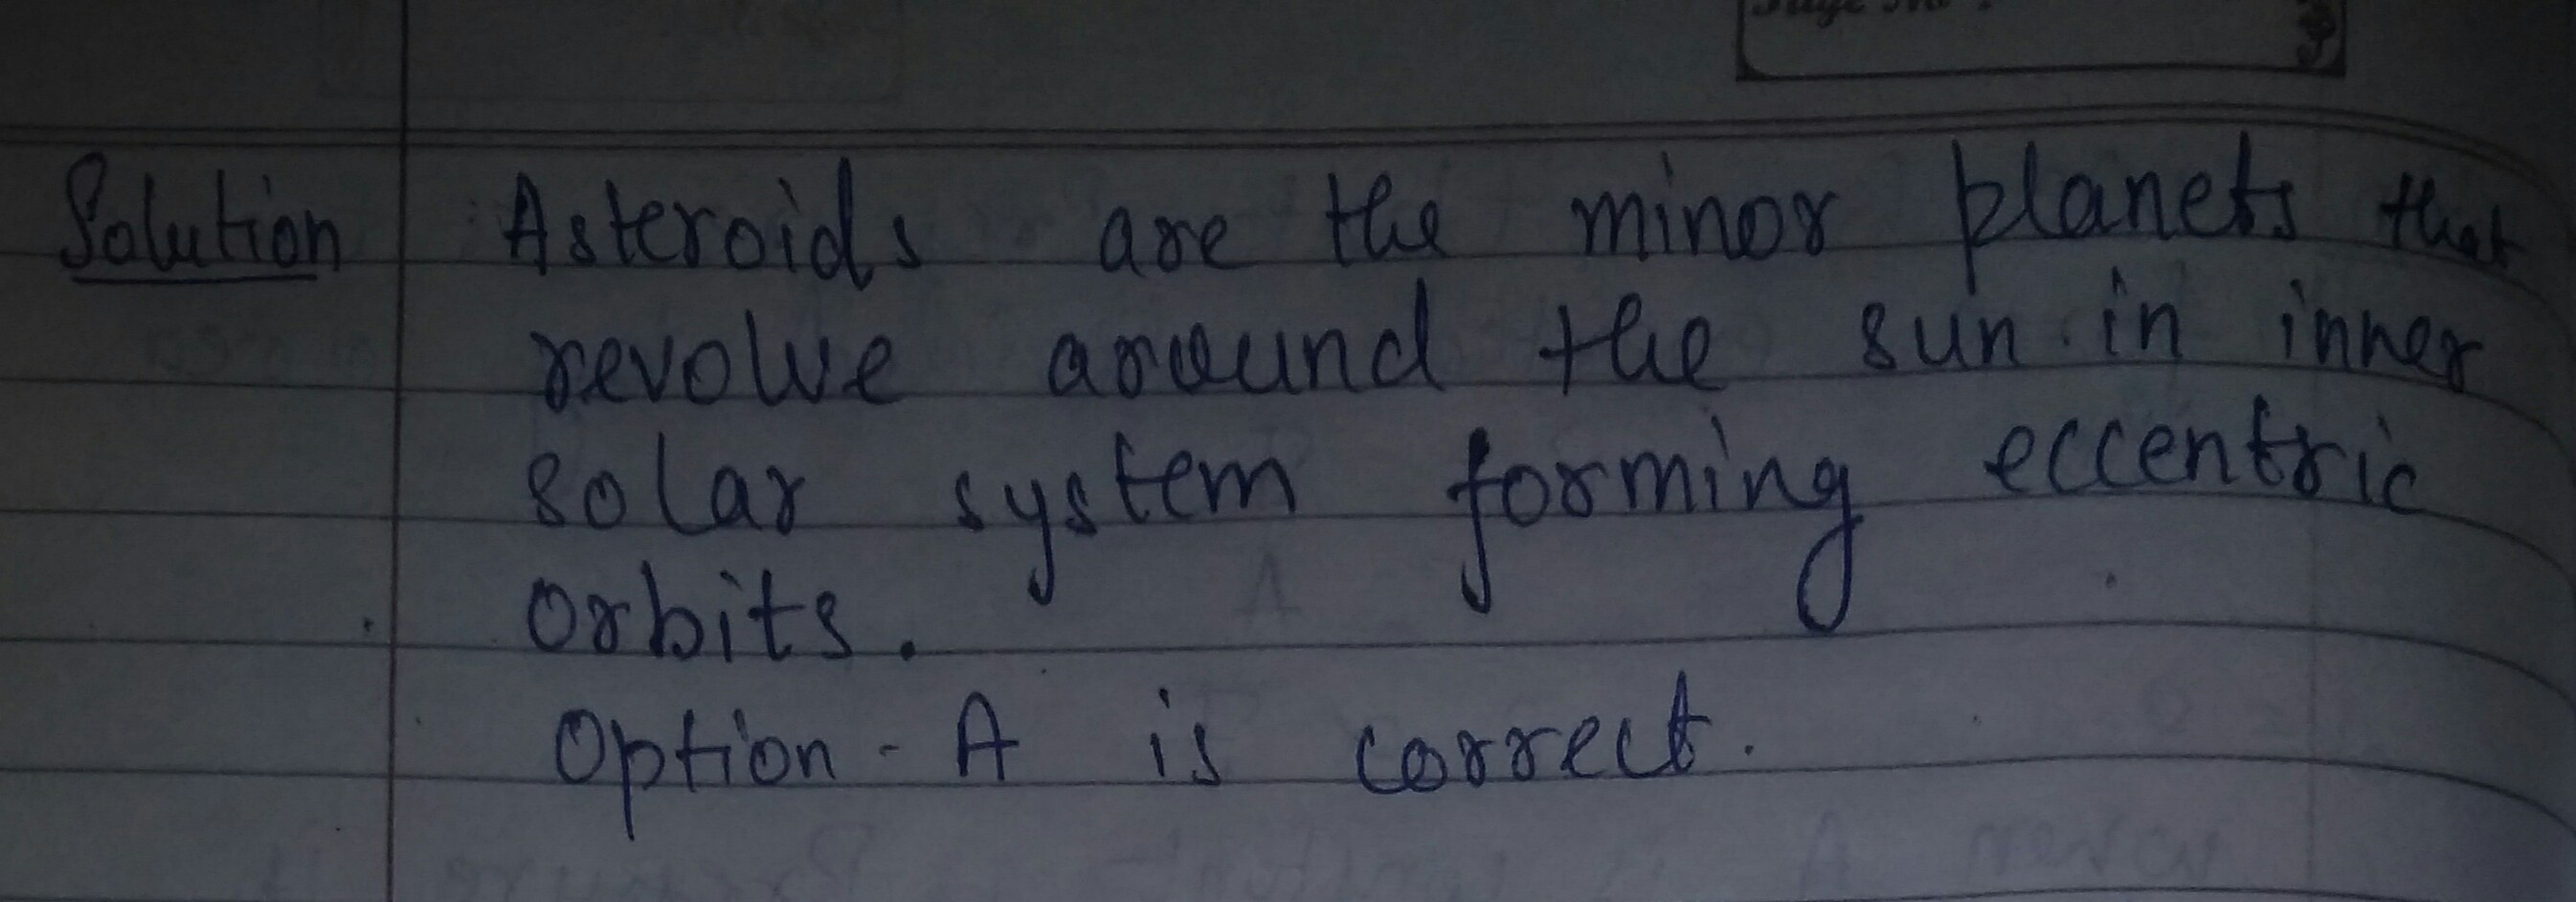 Page No.
Solution Asteroids are the minor planets that
revolve around the sun in inner
solar system forming eccentric
orbits.
Option - A is correct.